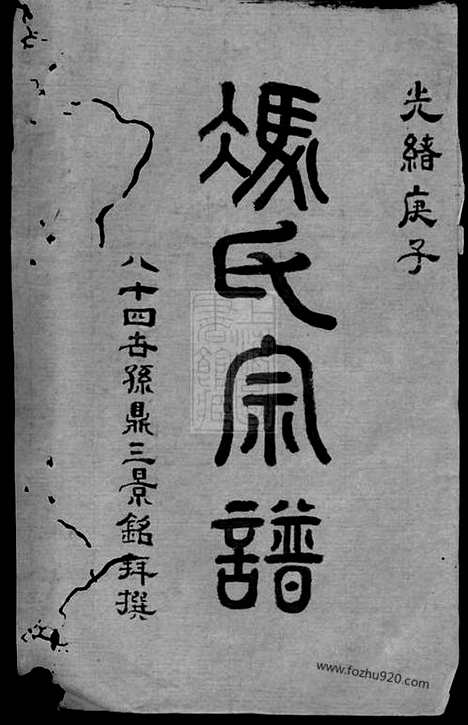 光緒庚子
馮氏宗譜
八十四世孫鼎三景銘拜撰
www.fozhu920.com